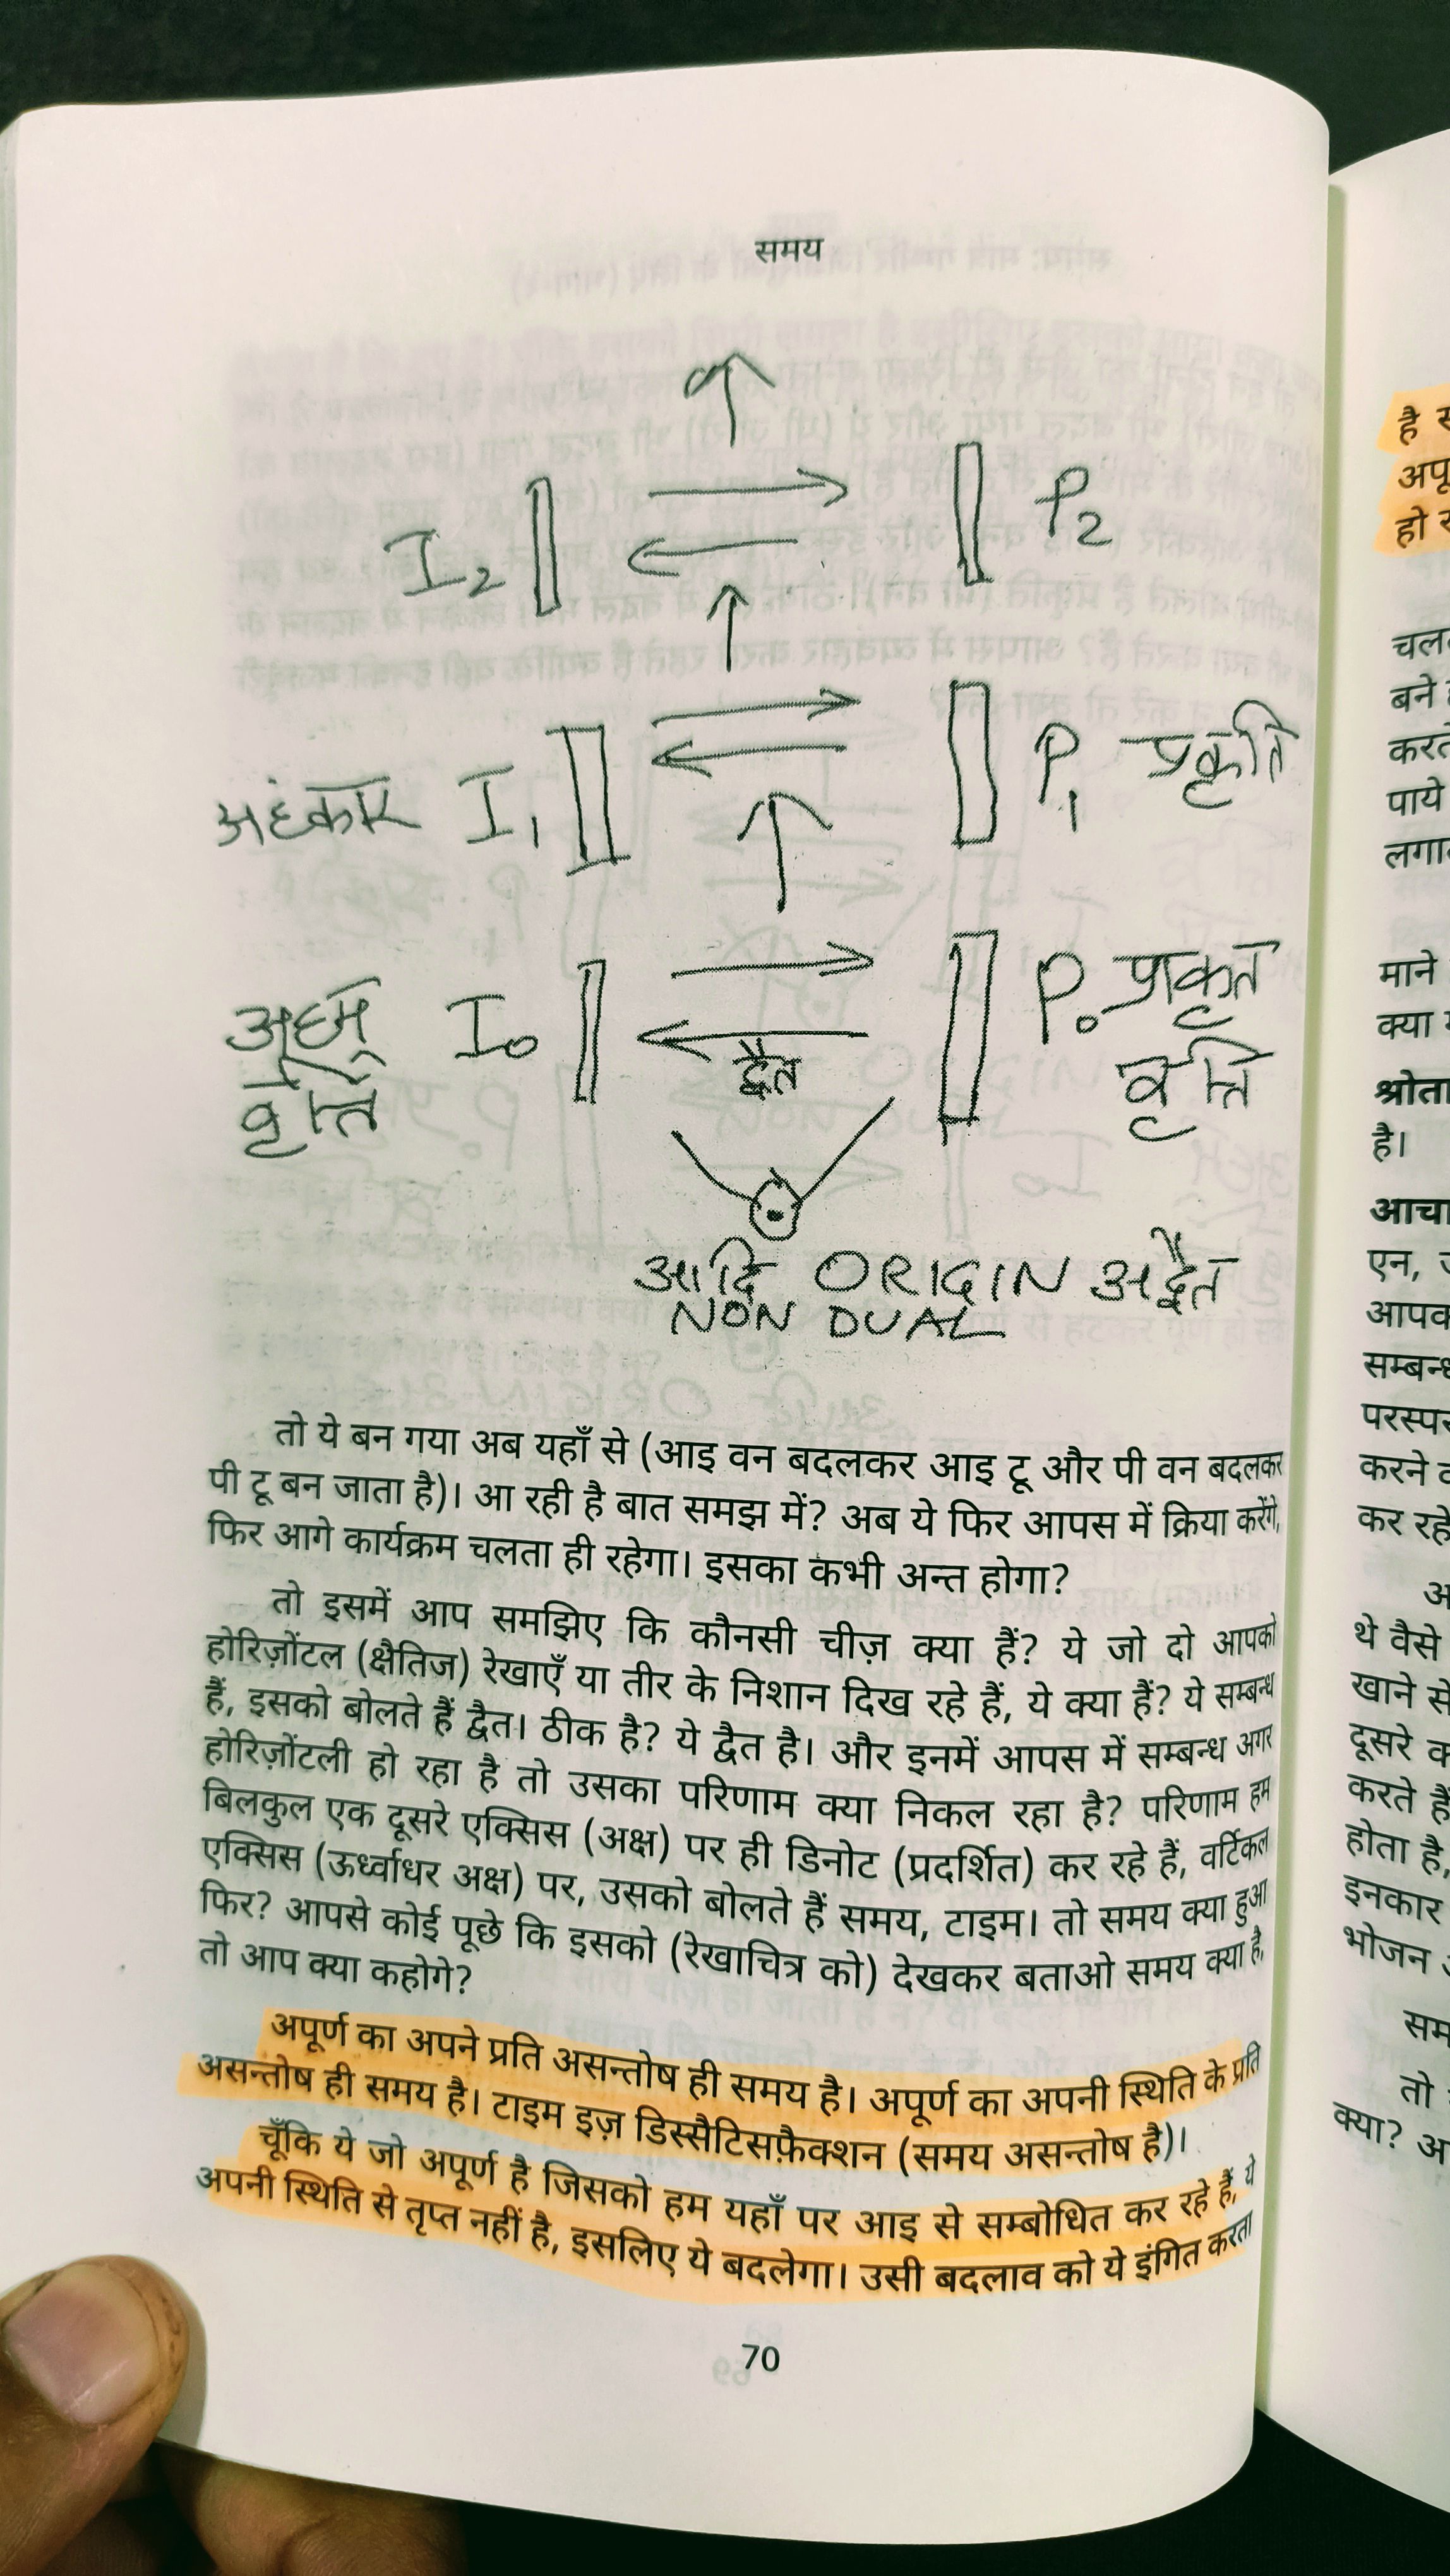 समय
I₂ P₂
अहंकार I₁ P₁ प्रकृति
अहम् I₀ P₀ प्राकृत
वृत्ति द्वैत वृत्ति
आदि ORIGIN अद्वैत
NON DUAL
तो ये बन गया अब यहाँ से (आइ वन बदलकर आइ टू और पी वन बदलकर
पी टू बन जाता है)। आ रही है बात समझ में? अब ये फिर आपस में क्रिया करेंगे,
फिर आगे कार्यक्रम चलता ही रहेगा। इसका कभी अन्त होगा?
तो इसमें आप समझिए कि कौनसी चीज़ क्या हैं? ये जो दो आपको
होरिज़ोंटल (क्षैतिज) रेखाएँ या तीर के निशान दिख रहे हैं, ये क्या हैं? ये सम्बन्ध
हैं, इसको बोलते हैं द्वैत। ठीक है? ये द्वैत है। और इनमें आपस में सम्बन्ध अगर
होरिज़ोंटली हो रहा है तो उसका परिणाम क्या निकल रहा है? परिणाम हम
बिलकुल एक दूसरे एक्सिस (अक्ष) पर ही डिनोट (प्रदर्शित) कर रहे हैं, वर्टिकल
एक्सिस (ऊर्ध्वाधर अक्ष) पर, उसको बोलते हैं समय, टाइम। तो समय क्या हुआ
फिर? आपसे कोई पूछे कि इसको (रेखाचित्र को) देखकर बताओ समय क्या है,
तो आप क्या कहोगे?
अपूर्ण का अपने प्रति असन्तोष ही समय है। अपूर्ण का अपनी स्थिति के प्रति
असन्तोष ही समय है। टाइम इज़ डिस्सैटिसफ़ैक्शन (समय असन्तोष है)।
चूँकि ये जो अपूर्ण है जिसको हम यहाँ पर आइ से सम्बोधित कर रहे हैं, ये
अपनी स्थिति से तृप्त नहीं है, इसलिए ये बदलेगा। उसी बदलाव को ये इंगित करता
70
है
हो
चल
बने
करते
पाये
माने
क्या
श्रोता
है।
एन,
करने
कर रहे
थे वैसे
खाने से
दूसरे
करते हैं
होता है,
इनकार
भोजन
तो
क्या?